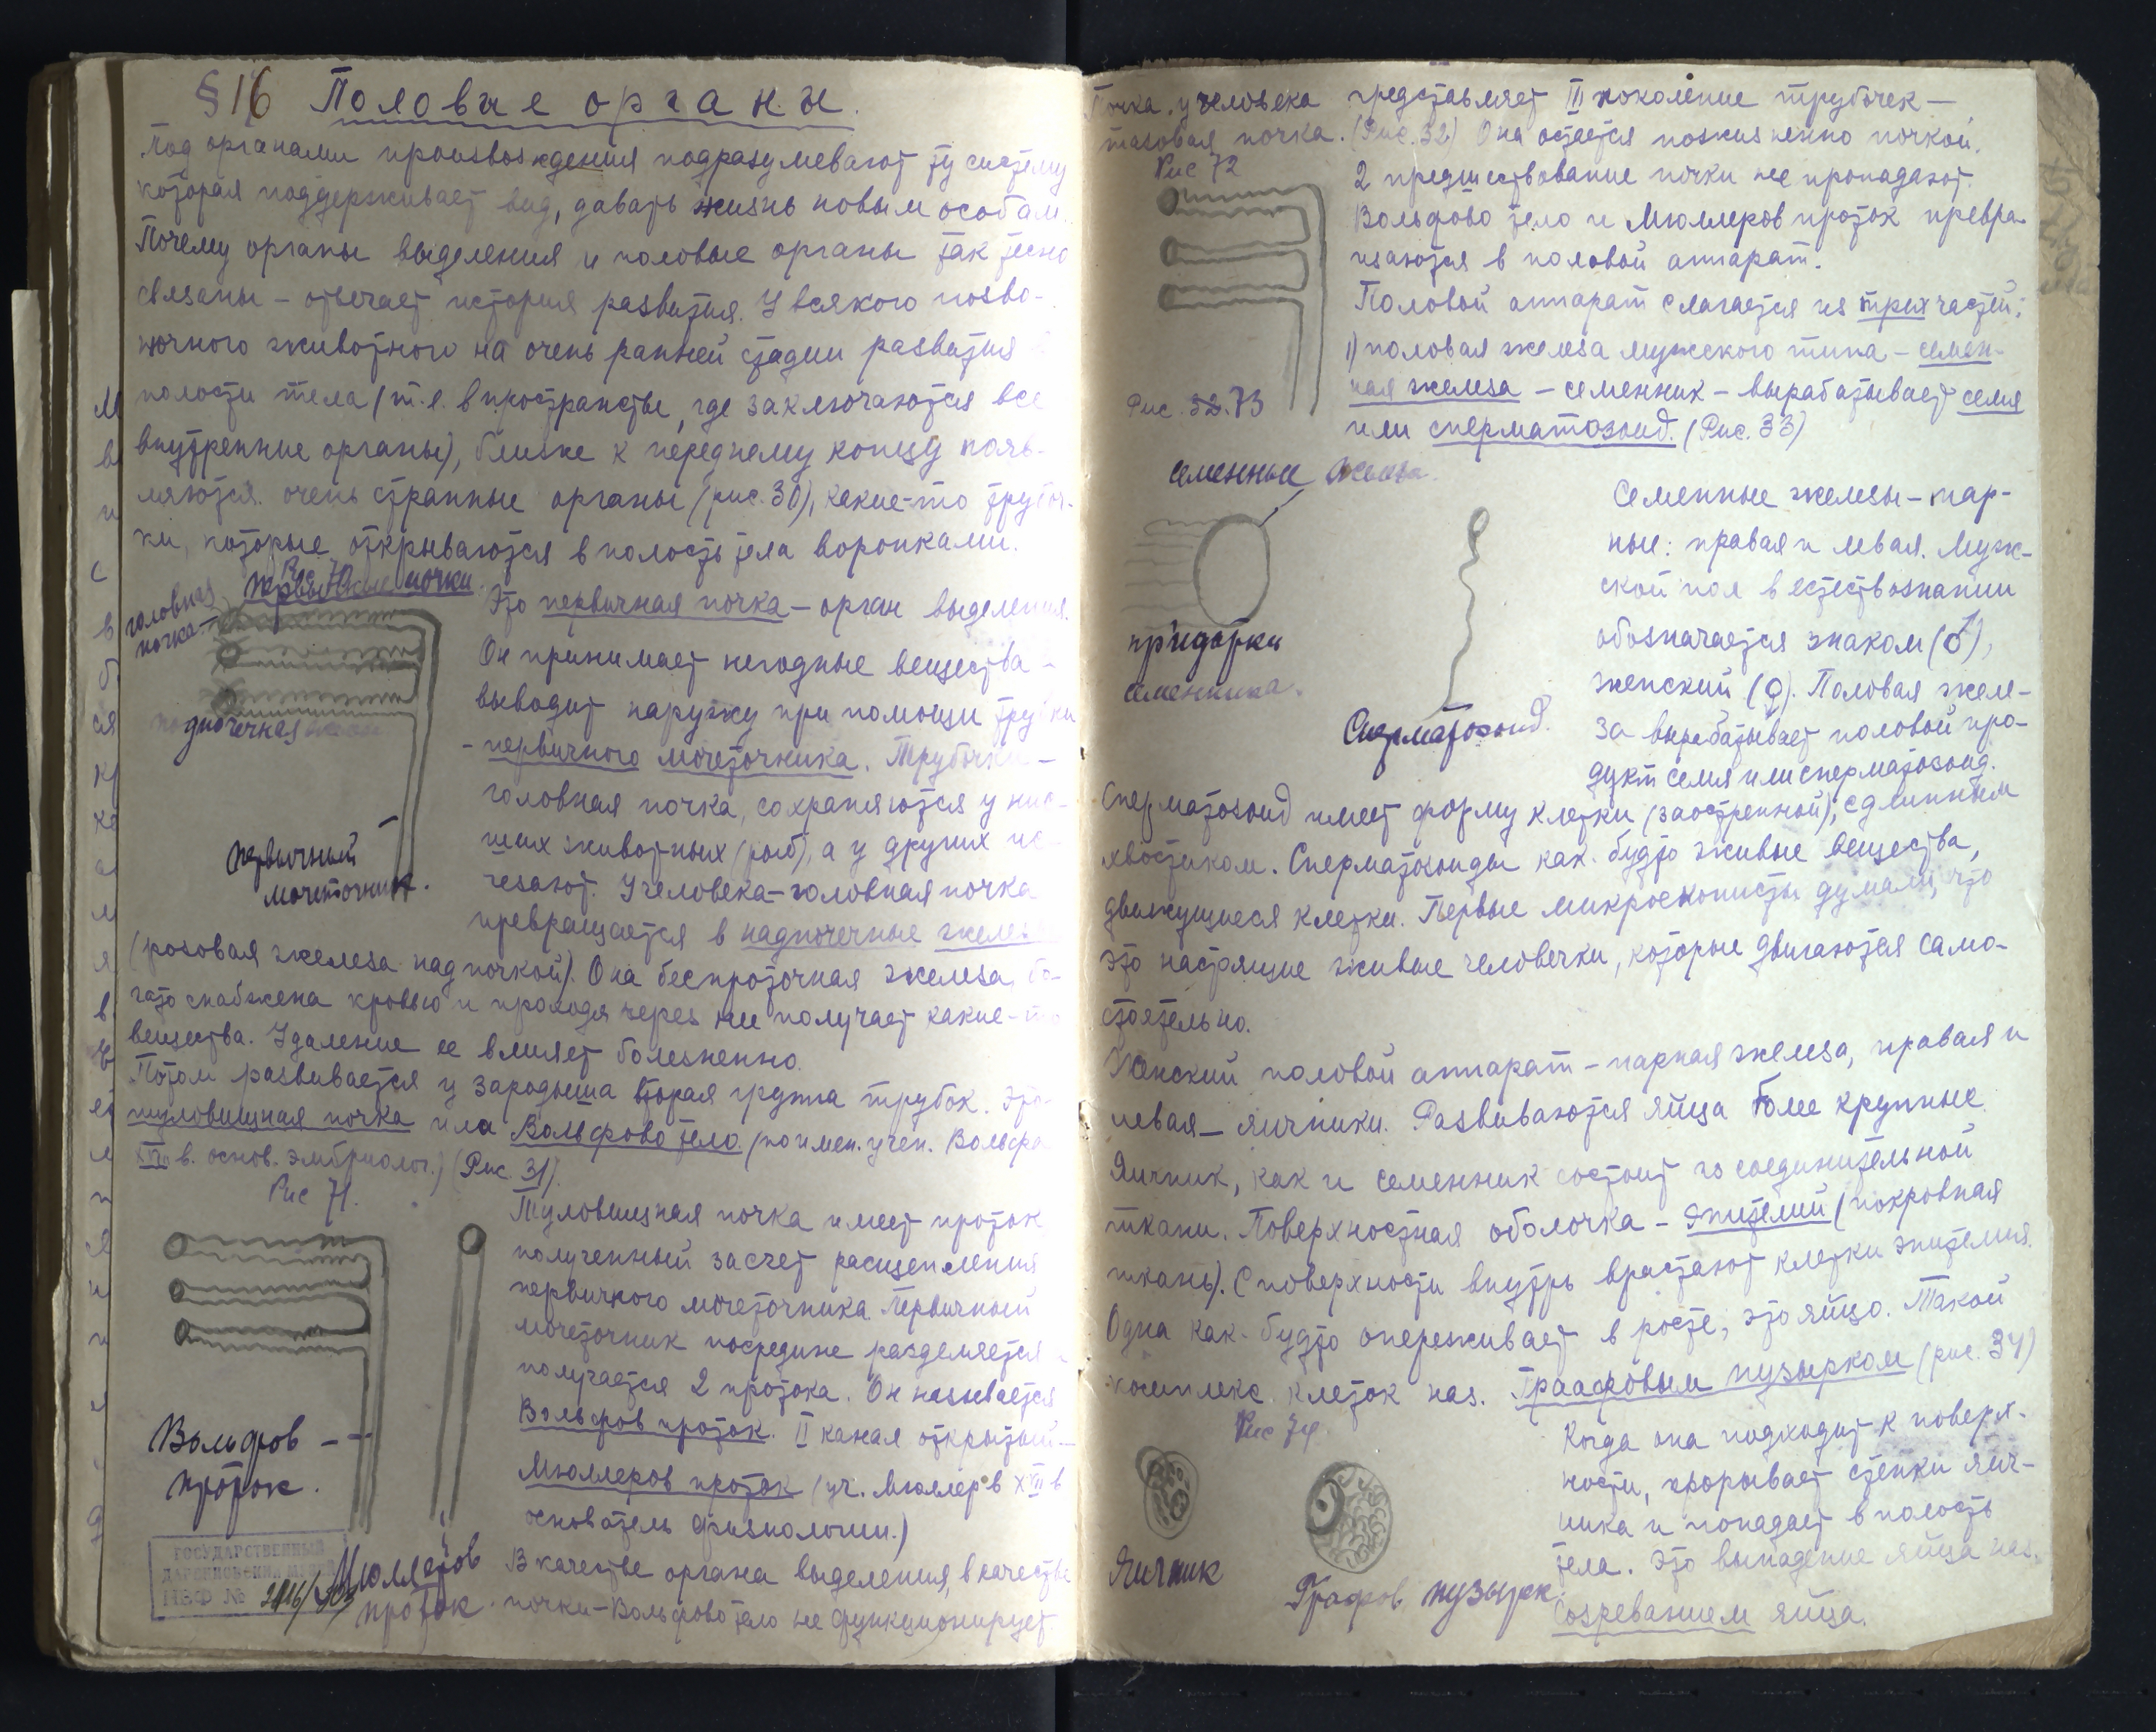 § 16 Половые органы.
Под органами произвождения подразумевают ту систему
которая поддерживает вид, давать жизнь новым особам.
Почему органы выделения и половые органы так тесно
связаны – отвечает история развития. У всякого позво-
ночного животного на очень ранней стадии развития в
полости тела (т.е. в пространстве, где заключаются все
внутренние органы), ближе к переднему концу появ-
ляются очень странные органы (рис. 30), какие-то трубоч-
ки, которые открываются в полость тела воронками.
Первичные почки
головная
почка –
Это первичная почка – орган выделения.
Он принимает негодные вещества –
выводит наружу при помощи трубки
– первичного мочеточника. Трубочки –
головная почка, сохраняются у низ-
ших животных (рыб), а у других ис-
чезают. У человека – головная почка
превращается в надпочечные железы
первичный
мочеточник.
(розовая железа над почкой). Она беспроточная железа, бо-
гато снабжена кровью и проходя через нее получает какие-то
вещества. Удаление ее влияет болезненно.
Потом развивается у зародыша вторая группа трубок. Это
туловищная почка или Вольфово тело (по имен. учен. Вольфа
XVIII в. основ. эмбриолог.) (Рис. 31).
Рис 71.
Туловищная почка имеет проток
полученный за счет расщепления
первичного мочеточника. Первичный
мочеточник посредине разделяется и
получается 2 протока. Он называется
Вольфов проток. II канал открытый –
Мюллеров проток (уч. Мюллер в XVII в
основатель физиологии.)
Вольфов –
проток.
Мюллеров
проток.
В качестве органа выделения, в качестве
почки – Вольфово тело не функционирует.
ГОСУДАРСТВЕННЫЙ
ДАРВИНОВСКИЙ МУЗЕЙ
Почка у человека представляет III поколение трубочек –
тазовая почка. (Рис. 32) Она остается пожизненно почкой.
Рис 72
2 предшествование почки не пропадают.
Вольфово тело и Мюллеров проток превра-
щаются в половой аппарат.
Половой аппарат слагается из трех частей:
1) половая железа мужского типа – семен-
ная железа – семенник – вырабатывает семя
или сперматозоид. (Рис. 33)
Рис. 73
семенные железа.
придатки
семенника.
Сперматозоид.
Семенные железы – пар-
ные: правая и левая. Муж-
ской пол в естествознании
обозначается знаком (♂),
женский (♀). Половая желе-
за вырабатывает половой про-
дукт семя или сперматозоид.
Сперматозоид имеет форму клетки (заостренной), с длинным
хвостиком. Сперматозоиды как-будто живые вещества,
движущиеся клетки. Первые микроскописты думали, что
это настоящие живые человечки, которые двигаются само-
стоятельно.
Женский половой аппарат – парная железа, правая и
левая – яичники. Развиваются яйца более крупные.
Яичник, как и семенник состоит из соединительной
ткани. Поверхностная оболочка – эпителий (покровная
ткань). С поверхности внутрь врастают клетки эпителия.
Одна как-будто опереживает в росте; это яйцо. Такой
комплекс клеток наз. Граафовым пузырком (рис. 34)
Рис 74.
Яичник
Граафов пузырк.
Когда она подходит к поверх-
ности, прорывает стенки яич-
ника и попадает в полость
тела. Это выпадение яйца наз.
Созреванием яйца.